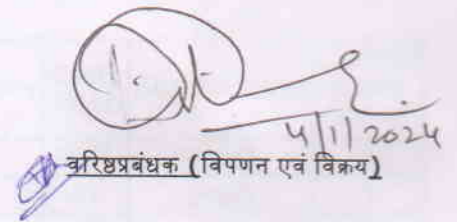 4/1/2024
वरिष्ठप्रबंधक (विपणन एवं विक्रय)